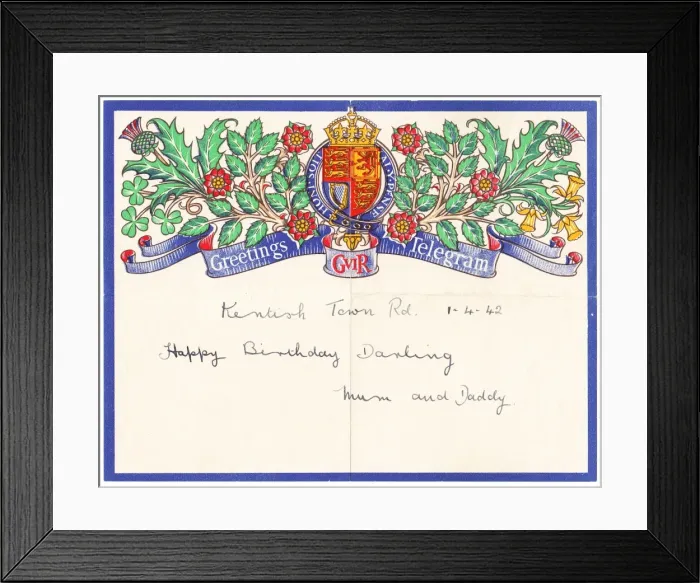 HONI SOIT
MAL Y PENSE
Greetings
GVIR
Telegram
Kentish Town Rd. 1-4-42
Happy Birthday Darling
Mum and Daddy